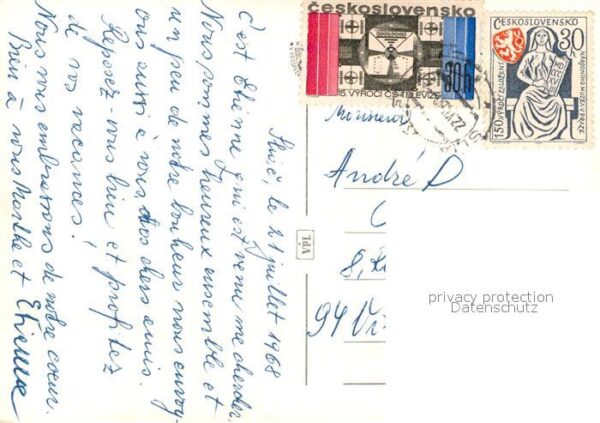 Slaič, le 21 juillet 1968
C'est Etienne qui est venu me chercher.
Nous sommes heureux ensemble et
un peu de notre bonheur nous envoy-
ons aussi à vous, chers amis.
Reposez vous bien et profitez
de vos vacances!
Nous vous embrassons de notre coeur.
Bien à vous Marthe et Etienne
VPL
ČESKOSLOVENSKO
30h
15. VÝROČÍ ČS. TELEVIZE
ČESKOSLOVENSKO
30
150. VÝROČÍ ZALOŽENÍ
NÁRODNÍHO MUZEA V PRAZE
Monsieur
André D
8,
94 Vi
privacy protection
Datenschutz